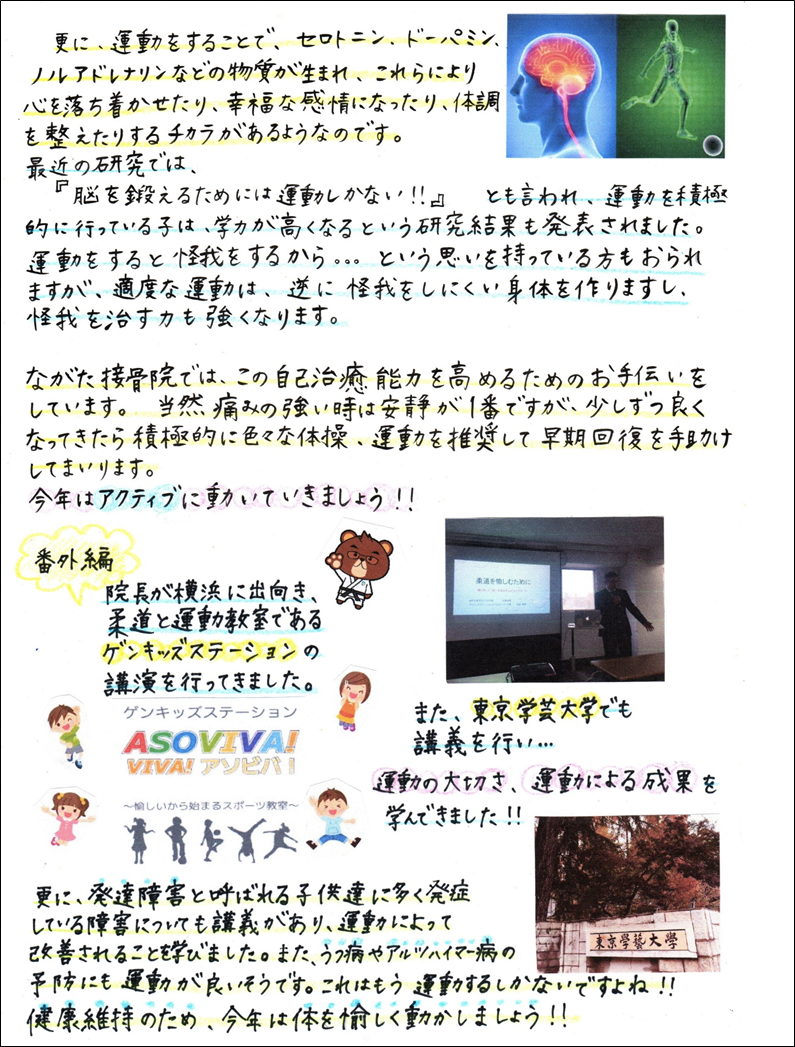 更に、運動をすることで、セロトニン、ドーパミン、
ノルアドレナリンなどの物質が生まれ、これらにより
心を落ち着かせたり、幸福な感情になったり、体調
を整えたりするチカラがあるようなのです。
最近の研究では、
『脳を鍛えるためには運動しかない!!』 とも言われ、運動を積極
的に行っている子は、学力が高くなるという研究結果も発表されました。
運動をすると怪我をするから... という思いを持っている方もおられ
ますが、適度な運動は、逆に怪我をしにくい身体を作りますし、
怪我を治す力も強くなります。
ながた接骨院では、この自己治癒能力を高めるためのお手伝いを
しています。 当然痛みの強い時は安静が1番ですが、少しずつ良く
なってきたら積極的に色々な体操、運動を推奨して早期回復を手助け
してまいります。
今年はアクティブに動いていきましょう!!
番外編
院長が横浜に出向き、
柔道と運動教室である
ゲンキッズステーションの
講演を行ってきました。
柔道を愉しむために
ゲンキッズステーション
ASOVIVA!
VIVA! アソビバ!
〜愉しいから始まるスポーツ教室〜
また、東京学芸大学でも
講義を行い...
運動の大切さ、運動による成果を
学んできました!!
東京学藝大学
更に、発達障害と呼ばれる子供達に多く発症
している障害についても講義があり、運動によって
改善されることを学びました。また、うつ病やアルツハイマー病の
予防にも運動が良いそうです。これはもう運動するしかないですよね!!
健康維持のため、今年は体を愉しく動かしましょう!!